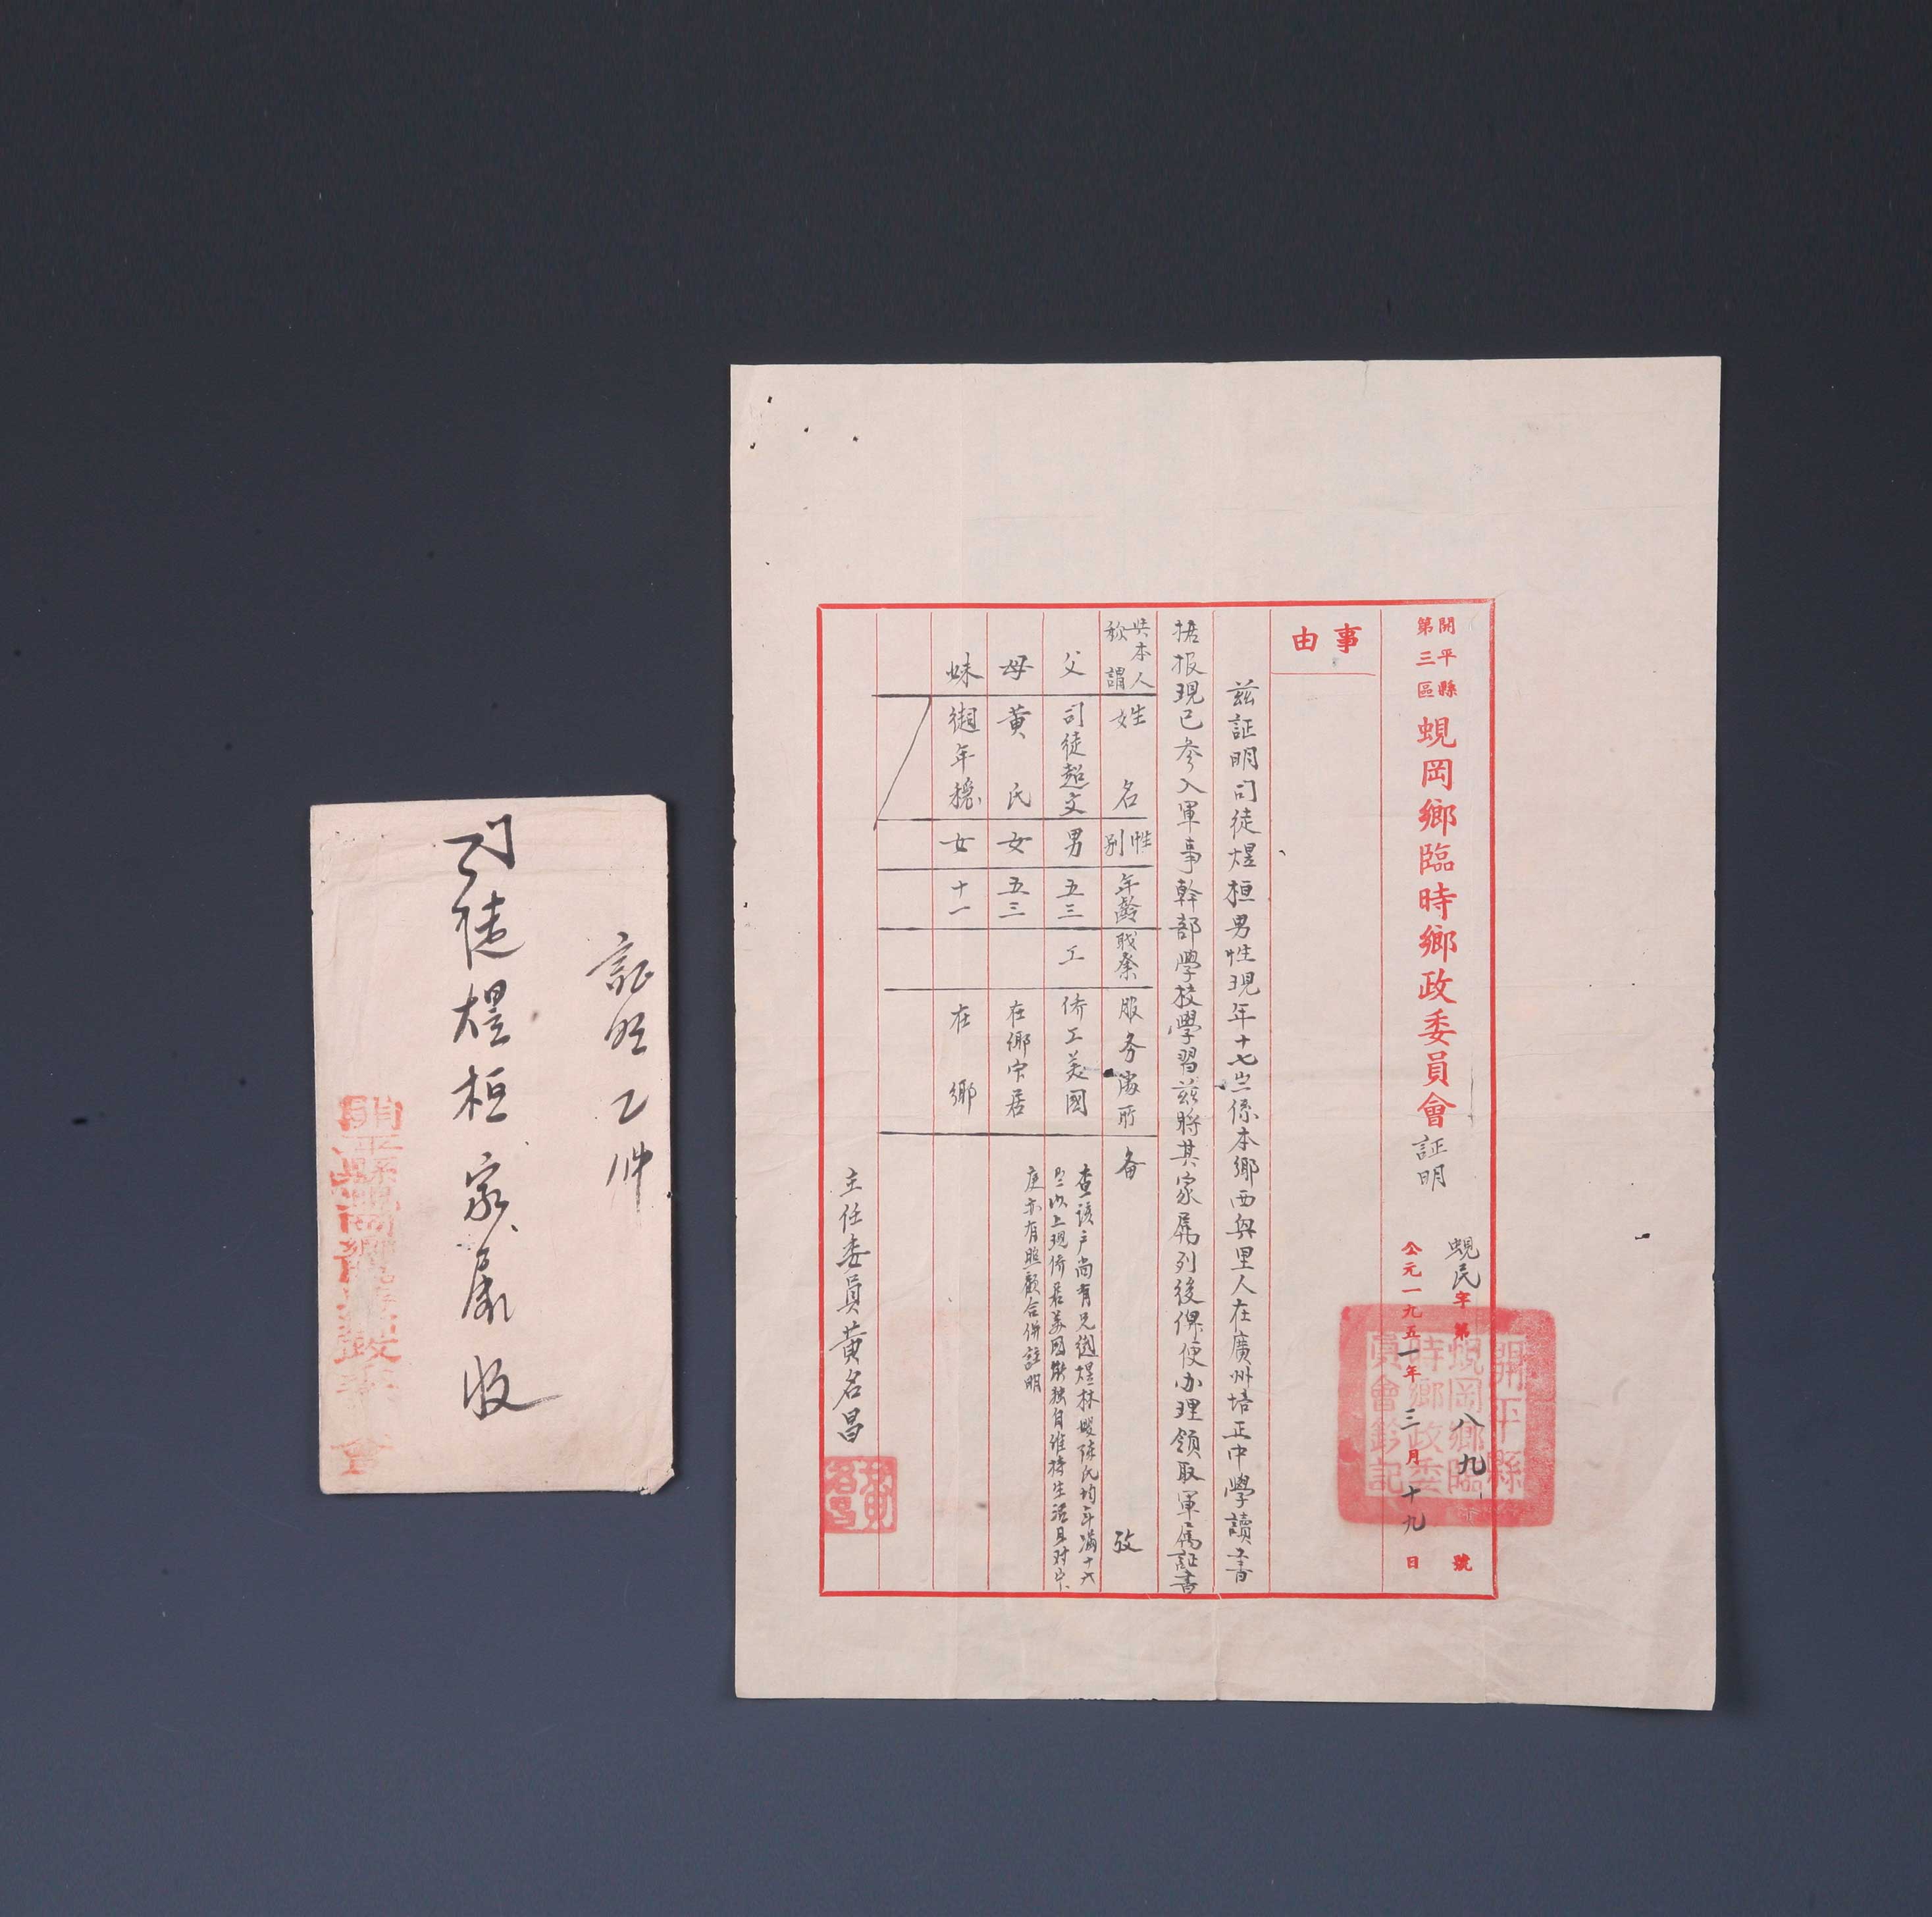 開平縣
第三區
蜆岡鄉臨時鄉政委員會証明
蜆民字第八九號
公元一九五一年三月十九日
開平縣
蜆岡鄉臨
時鄉政委
員會鈐記
事由
茲証明司徒煜桓男性現年十七岁係本鄉西興里人在廣州培正中學讀書
据报現已參入軍事幹部學校學習茲將其家屬列後俾便办理領取軍屬証書
與本人
称謂
姓名
性別
年齡
職業
服务場所
备攷
父
司徒超文
男
五三
工
侨工美國
查該户尚有兄煜林嫂陈氏均年滿十六
岁以上現侨居美國能独自維持生活且对家
庭亦有照顧合併註明
母
黄氏
女
五三
在鄉家居
妹
年穩
女
十一
在鄉
主任委員黄名昌
黄名昌
証明乙件
司徒煜桓家屬收
開平縣蜆岡鄉臨時鄉政委員會